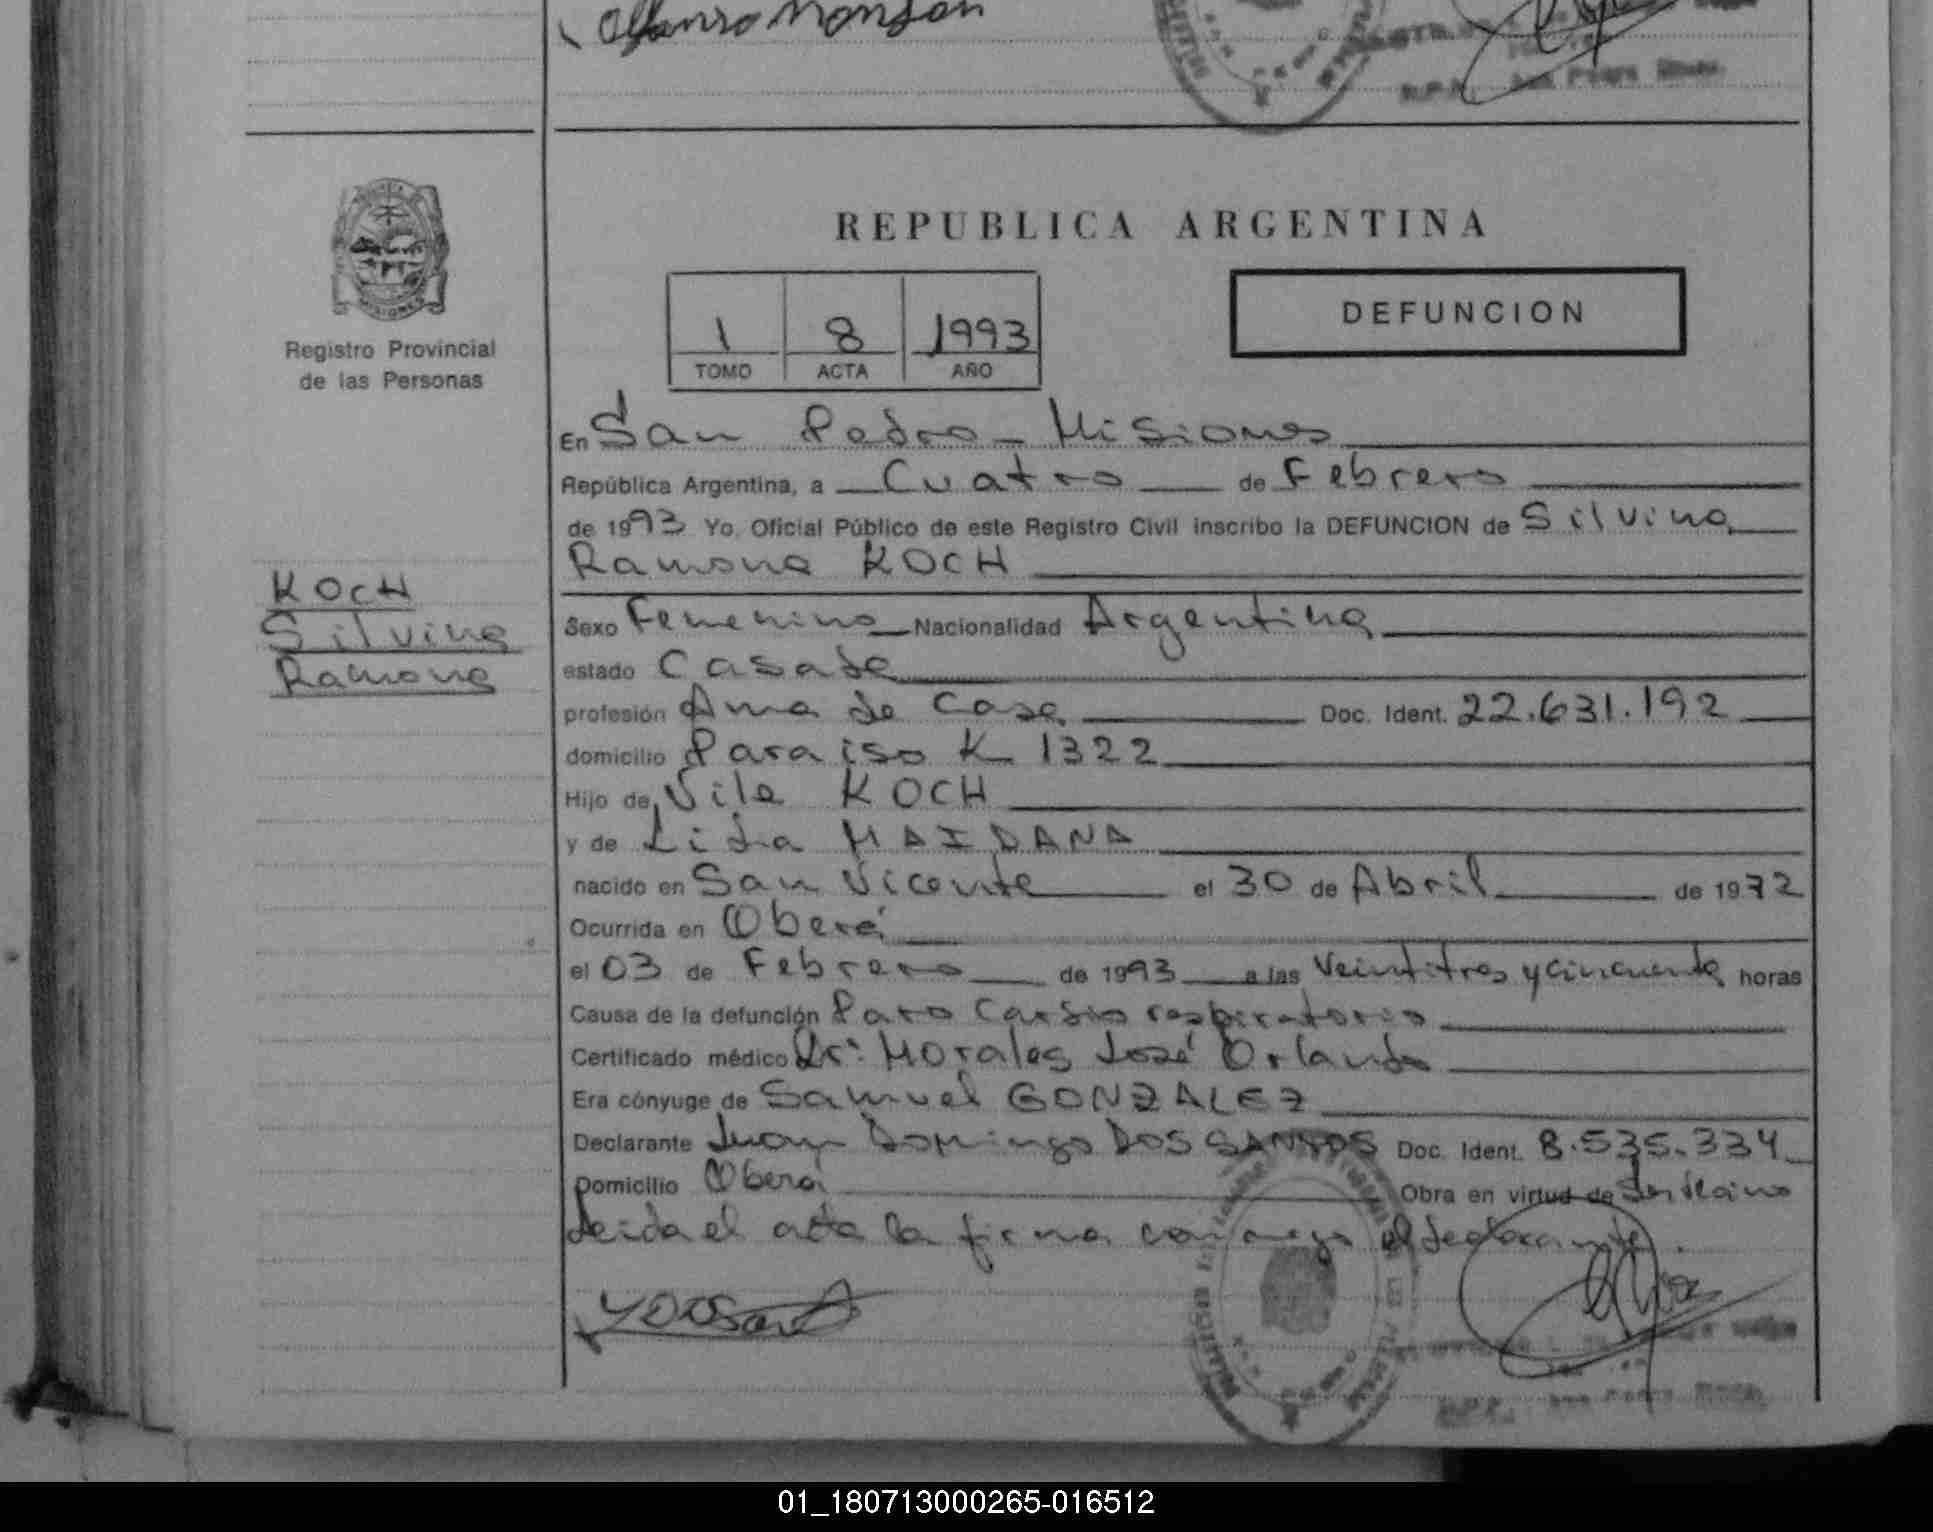 Alfonso Monson
REPUBLICA ARGENTINA
1 8 1993
TOMO ACTA AÑO
DEFUNCION
Registro Provincial
de las Personas
En San Pedro - Misiones
República Argentina, a Cuatro de Febrero
de 1993 Yo, Oficial Público de este Registro Civil inscribo la DEFUNCION de Silvina
Ramona KOCH
KOCH
Silvina
Ramona
Sexo Femenino Nacionalidad Argentina
estado Casada
profesión Ama de Casa Doc. Ident. 22.631.192
domicilio Paraiso K 1322
Hijo de Vila KOCH
y de Lidia MAIDANA
nacido en San Vicente el 30 de Abril de 1972
Ocurrida en Oberá
el 03 de Febrero de 1993 a las Veintitres y cincuenta horas
Causa de la defunción Paro Cardio respiratorio
Certificado médico Dr: Morales José Orlando
Era cónyuge de Samuel GONZALEZ
Declarante Juan Domingo DOS SANTOS Doc. Ident. 8.535.334
Domicilio Oberá Obra en virtud de
Leida el acta la firma conmigo el declarante.
01_180713000265-016512